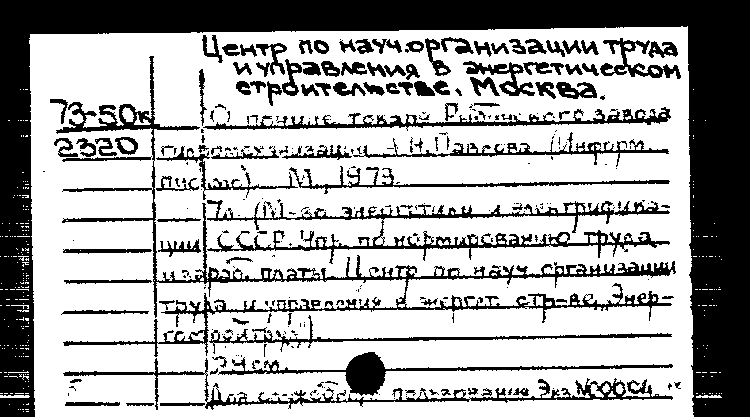 Центр по науч.организации труда
и управления в энергетическом
строительстве. Москва.
73-50к О почине токаря Рыбинского завода
2320 гидромеханизации А.Н.Павлова. (Информ.
письмо). М., 1973.
7л. (М-во энергетики и электрифика-
ции СССР. Упр. по нормированию труда
и зараб. платы. Центр по науч. организации
труда и управления в энергет. стр-ве „Энер-
гостройтруд").
см.
Для служебного пользования. Экз. №0004